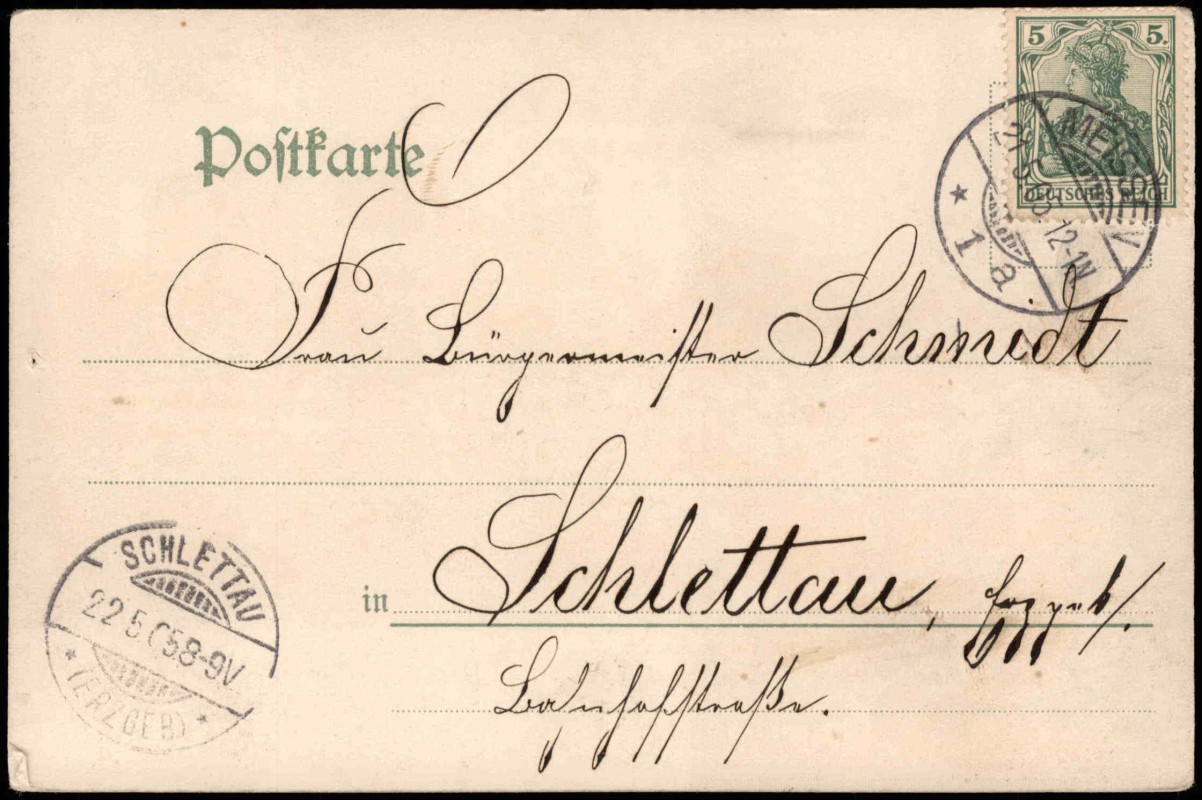 Postkarte
5 5.
DEUTSCHES REICH
MEISSEN
21.5.05.12-1N
* 1 a
Frau Bürgermeister Schmidt
in Schlettau, Erzgeb/.
Bahnhofstraße.
SCHLETTAU
22 5 05 8-9V
* (ERZGEB) *